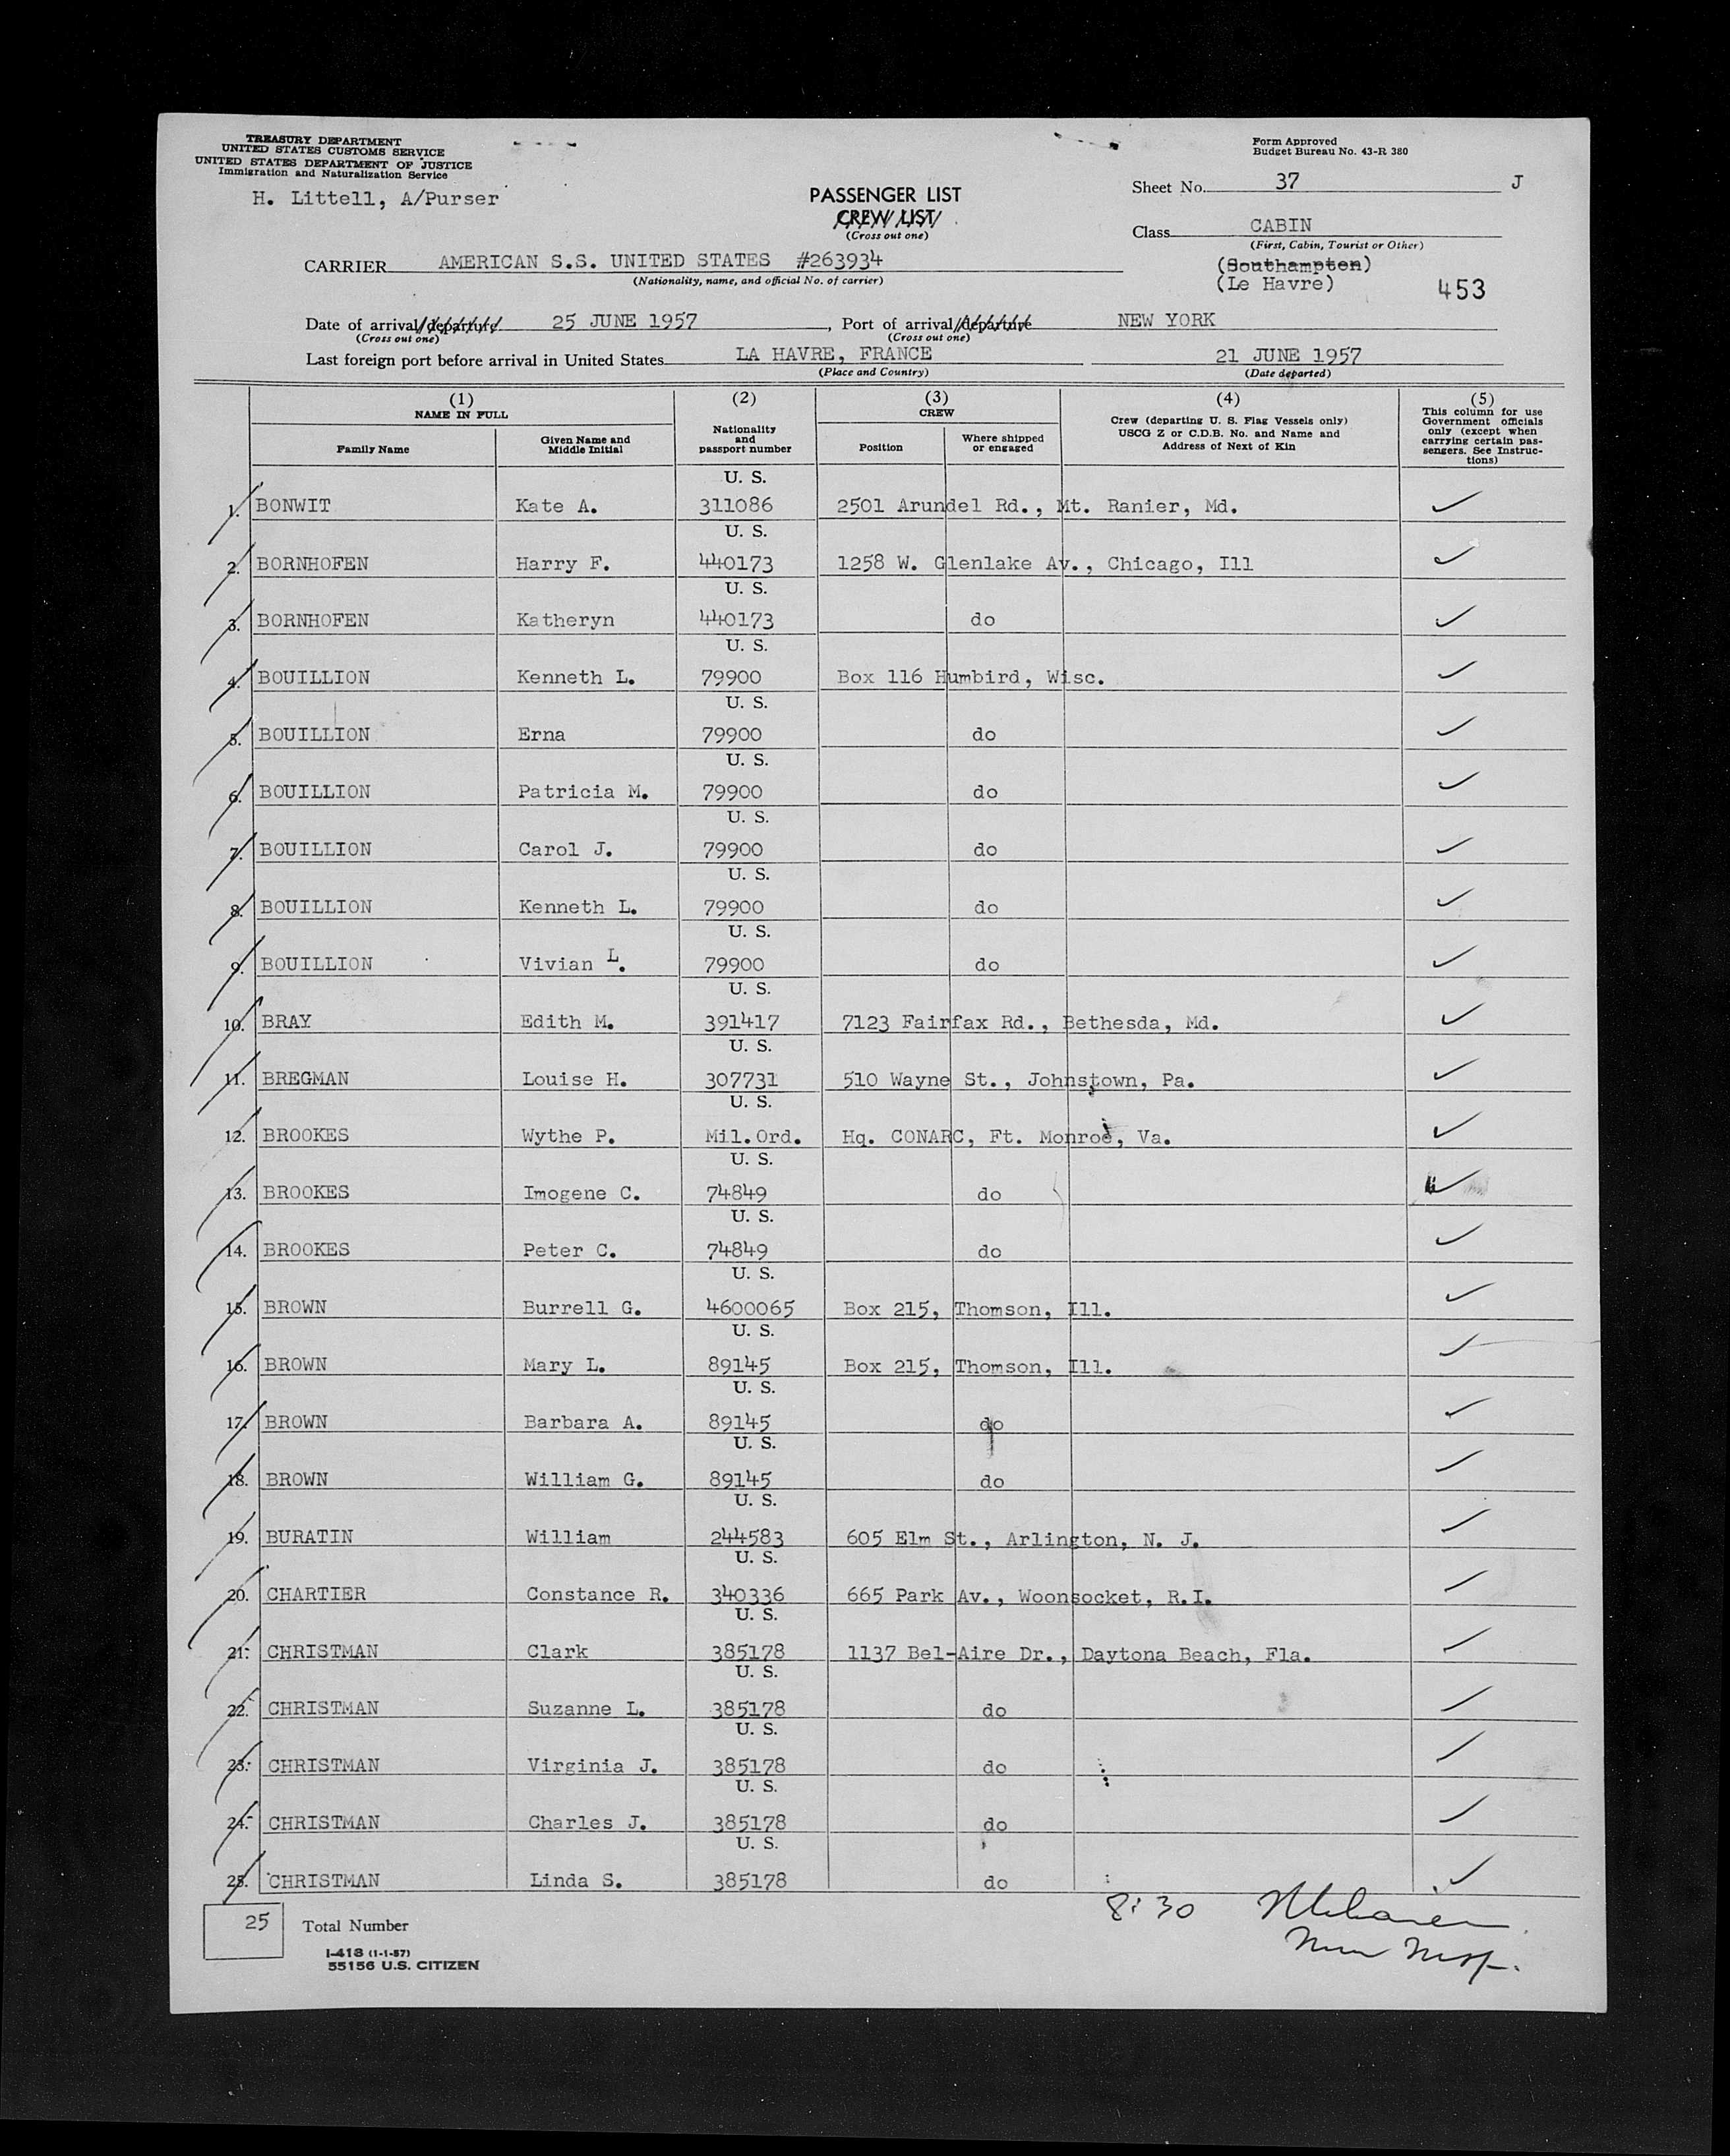 TREASURY DEPARTMENT
UNITED STATES CUSTOMS SERVICE
UNITED STATES DEPARTMENT OF JUSTICE
Immigration and Naturalization Service
H. Littell, A/Purser
Form Approved
Budget Bureau No. 43-R 380
Sheet No. 37 J
PASSENGER LIST
CREW LIST
(Cross out one)
Class CABIN
(First, Cabin, Tourist or Other)
CARRIER AMERICAN S.S. UNITED STATES #263934
(Nationality, name, and official No. of carrier)
(Southampton)
(Le Havre) 453
Date of arrival/departure 25 JUNE 1957, Port of arrival/departure NEW YORK
(Cross out one) (Cross out one)
Last foreign port before arrival in United States LA HAVRE, FRANCE 21 JUNE 1957
(Place and Country) (Date departed)
(1) (2) (3) (4) (5)
NAME IN FULL
Family Name
Given Name and
Middle Initial
Nationality
and
passport number
CREW
Position
Where shipped
or engaged
Crew (departing U. S. Flag Vessels only)
USCG Z or C.D.B. No. and Name and
Address of Next of Kin
This column for use
Government officials
only (except when
carrying certain pas-
sengers. See Instruc-
tions)
U. S.
1. BONWIT Kate A. 311086 2501 Arundel Rd., Mt. Ranier, Md.
U. S.
2. BORNHOFEN Harry F. 440173 1258 W. Glenlake Av., Chicago, Ill
U. S.
3. BORNHOFEN Katheryn 440173 do
U. S.
4. BOUILLION Kenneth L. 79900 Box 116 Humbird, Wisc.
U. S.
5. BOUILLION Erna 79900 do
U. S.
6. BOUILLION Patricia M. 79900 do
U. S.
7. BOUILLION Carol J. 79900 do
U. S.
8. BOUILLION Kenneth L. 79900 do
U. S.
9. BOUILLION Vivian L. 79900 do
U. S.
10. BRAY Edith M. 391417 7123 Fairfax Rd., Bethesda, Md.
U. S.
11. BREGMAN Louise H. 307731 510 Wayne St., Johnstown, Pa.
U. S.
12. BROOKES Wythe P. Mil.Ord. Hq. CONARC, Ft. Monroe, Va.
U. S.
13. BROOKES Imogene C. 74849 do
U. S.
14. BROOKES Peter C. 74849 do
U. S.
15. BROWN Burrell G. 4600065 Box 215, Thomson, Ill.
U. S.
16. BROWN Mary L. 89145 Box 215, Thomson, Ill.
U. S.
17. BROWN Barbara A. 89145 do
U. S.
18. BROWN William G. 89145 do
U. S.
19. BURATIN William 244583 605 Elm St., Arlington, N. J.
U. S.
20. CHARTIER Constance R. 340336 665 Park Av., Woonsocket, R.I.
U. S.
21. CHRISTMAN Clark 385178 1137 Bel-Aire Dr., Daytona Beach, Fla.
U. S.
22. CHRISTMAN Suzanne L. 385178 do
U. S.
23. CHRISTMAN Virginia J. 385178 do
U. S.
24. CHRISTMAN Charles J. 385178 do
U. S.
25. CHRISTMAN Linda S. 385178 do
8:30
25 Total Number
I-418 (1-1-57)
55156 U.S. CITIZEN